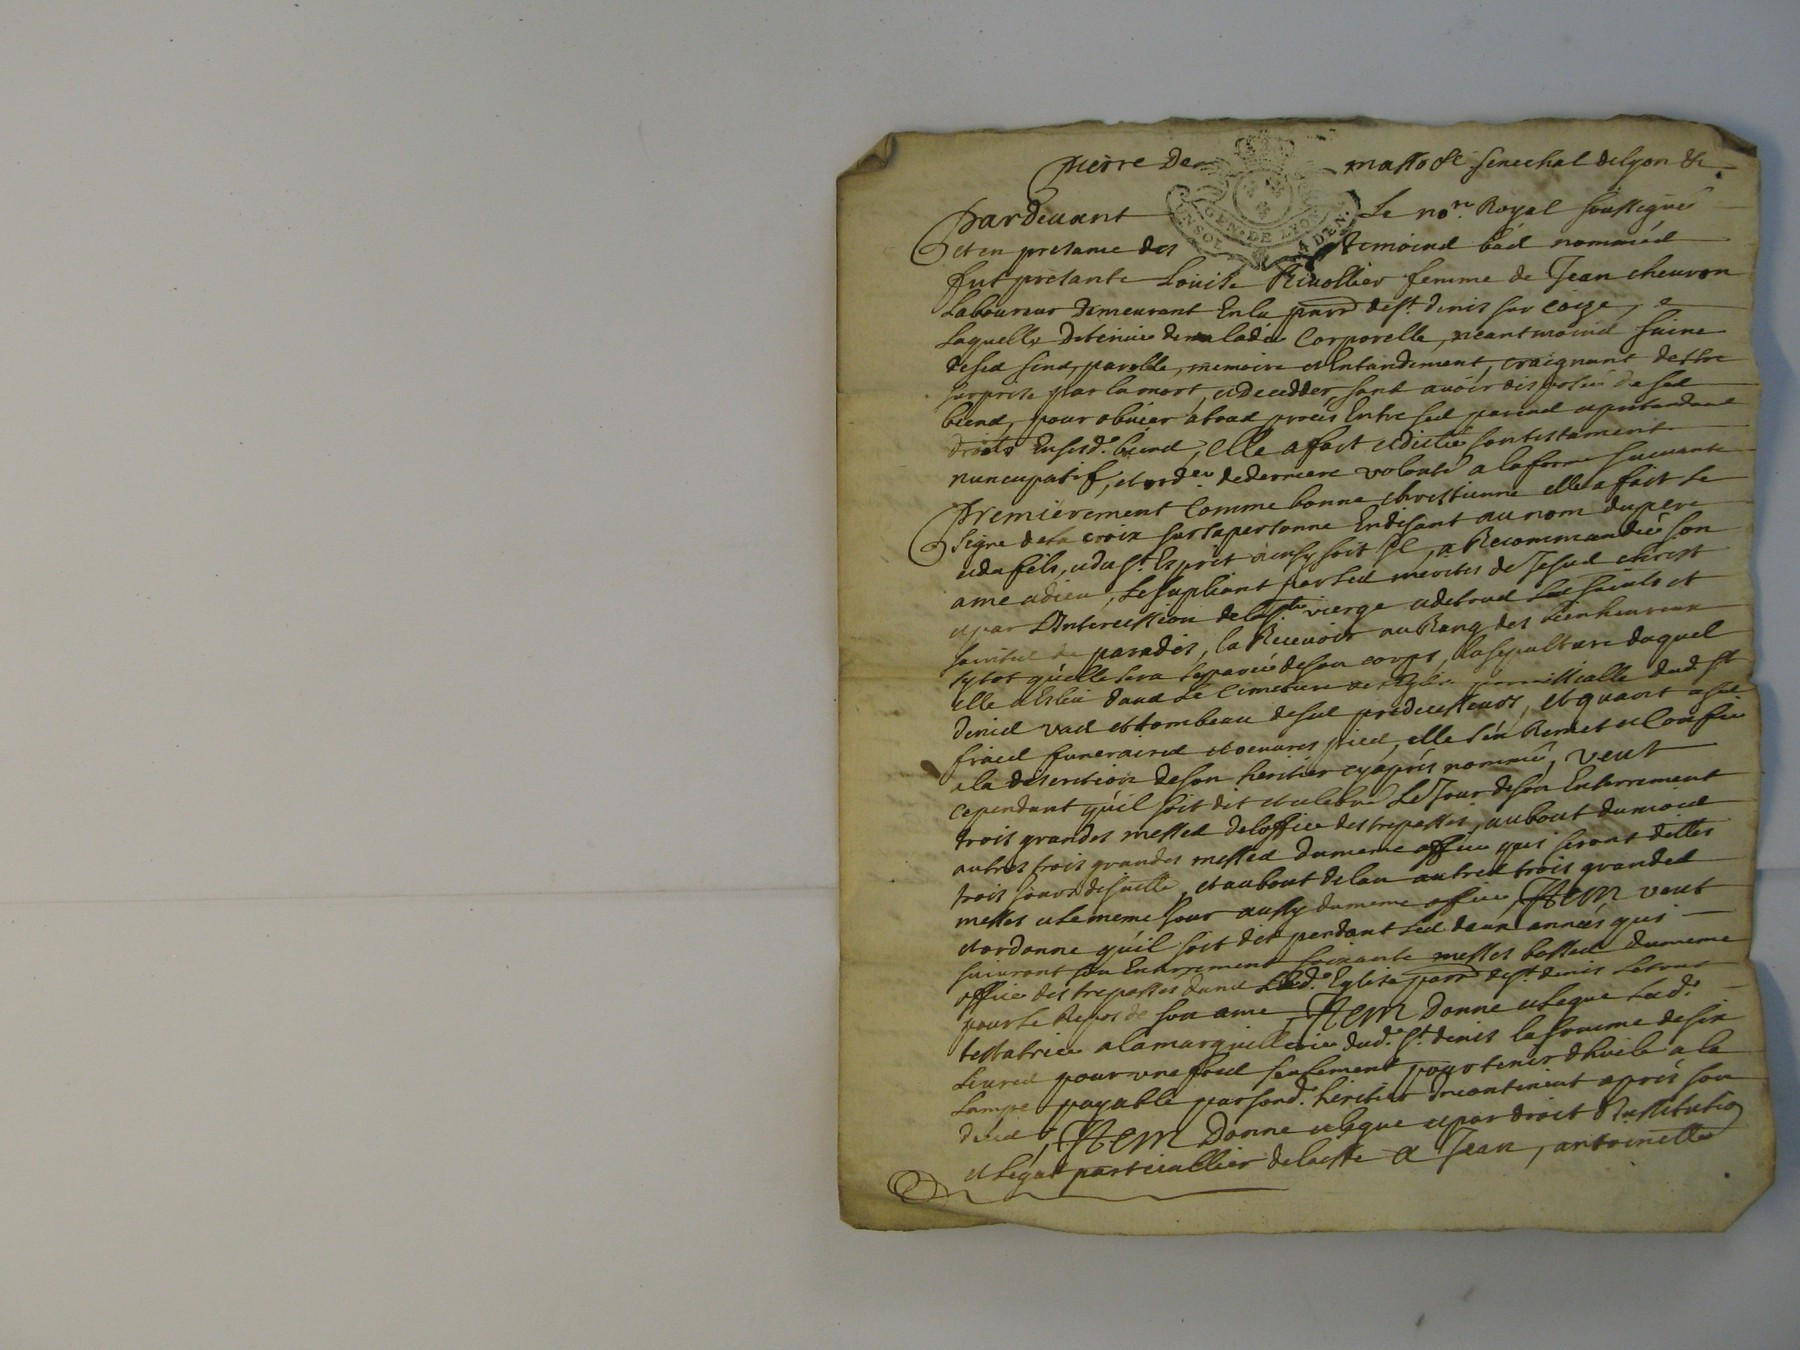 pierre de masso &c senechal de lyon &c
GEN. DE LYON
pardevant Le no.re Royal soussigné
et en presance des temoins bas nommés
fut presante Louise Rivollier femme de Jean chevron
Laboureur demeurant En la parr de st. denis sur coize,
Laquelle detenue de maladie Corporelle, neantmoins saine
de ses sens, parolle, memoire et Entandement, craignant destre
surprise par la mort, et deceder sans avoir disposé de ses
biens, pour obvier a tous procés Entre ses parens et pretandans
droits En sesd. biens, elle a fait et dicté son testament
nuncupatif, et ord.ce de derniere volonté a la forme suivante
premierement Comme bonne chrestienne elle a fait le
signe de la croix sur sa personne En disant au nom du pere
et du fils, et du st. Esprit ainsy soit il, a Recommandé son
ame a dieu, le supliant par les merites de Jesus christ
et par L'Intercession de la ste vierge et de tous les saints et
saintes de paradis, la Recevoir au Rang des bienheureux
sytot qu'elle sera separée de son corps, la sepulture duquel
elle a Esleu dans Le Cimetiere de l'Eglise parroissialle dud. st
denis vas et tombeau de ses predecesseurs, et quant a ses
frais funeraires et oeuvres pies, elle s'en Remet et Confie
a la discretion de son heritier cy après nommé, veut
cependant qu'il soit dit et celebré Le Jour de son Enterrement
trois grandes messes de l'office des trepassés, au bout du mois
autres trois grandes messes du meme office qui seront dittes
trois jours de suitte, et au bout de l'an autres trois grandes
messes et le meme Jour aussy du meme office, Item veut
et ordonne qu'il soit dit pendant les deux années qui
suivront son Enterrement soixante messes basses du meme
office des trepassés dans lad. Eglise parr de st. denis Le tout
pour le Repos de son ame, Item Donne et Legue lad.
testatrice a la marguillerie dud. st. denis la somme de six
Livres pour une fois seulement pour tenir d'huile a la
Lampe payable par sond. heritier Incontinent après son
decès, Item Donne et legue et par droit d'Institution
et Legat particullier delaisse a Jean, antoinette